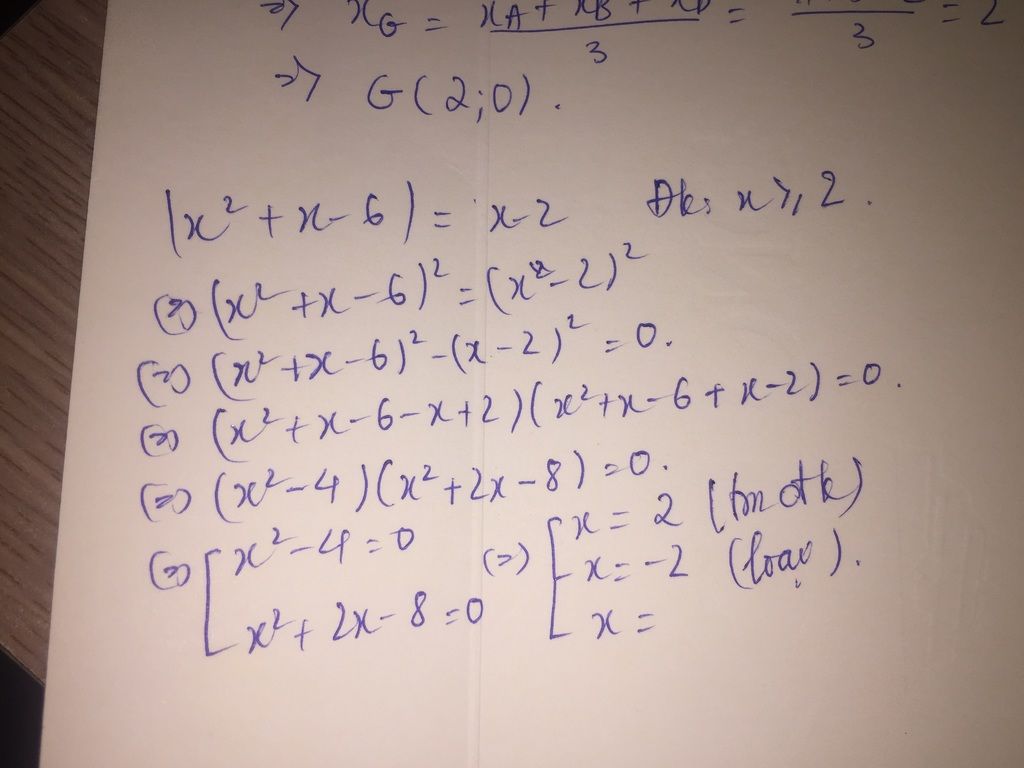 => x_G = x_A + x_B + x_D / 3 = / 3 = 2
=> G(2;0).
|x² + x - 6| = x - 2 Đk: x ≥ 2.
(=) (x² + x - 6)² = (x - 2)²
(=) (x² + x - 6)² - (x - 2)² = 0.
(=) (x² + x - 6 - x + 2)(x² + x - 6 + x - 2) = 0.
(=) (x² - 4)(x² + 2x - 8) = 0.
(=) [ x² - 4 = 0 (=) [ x = 2 (tm đk)
x = -2 (loại).
x² + 2x - 8 = 0 x =